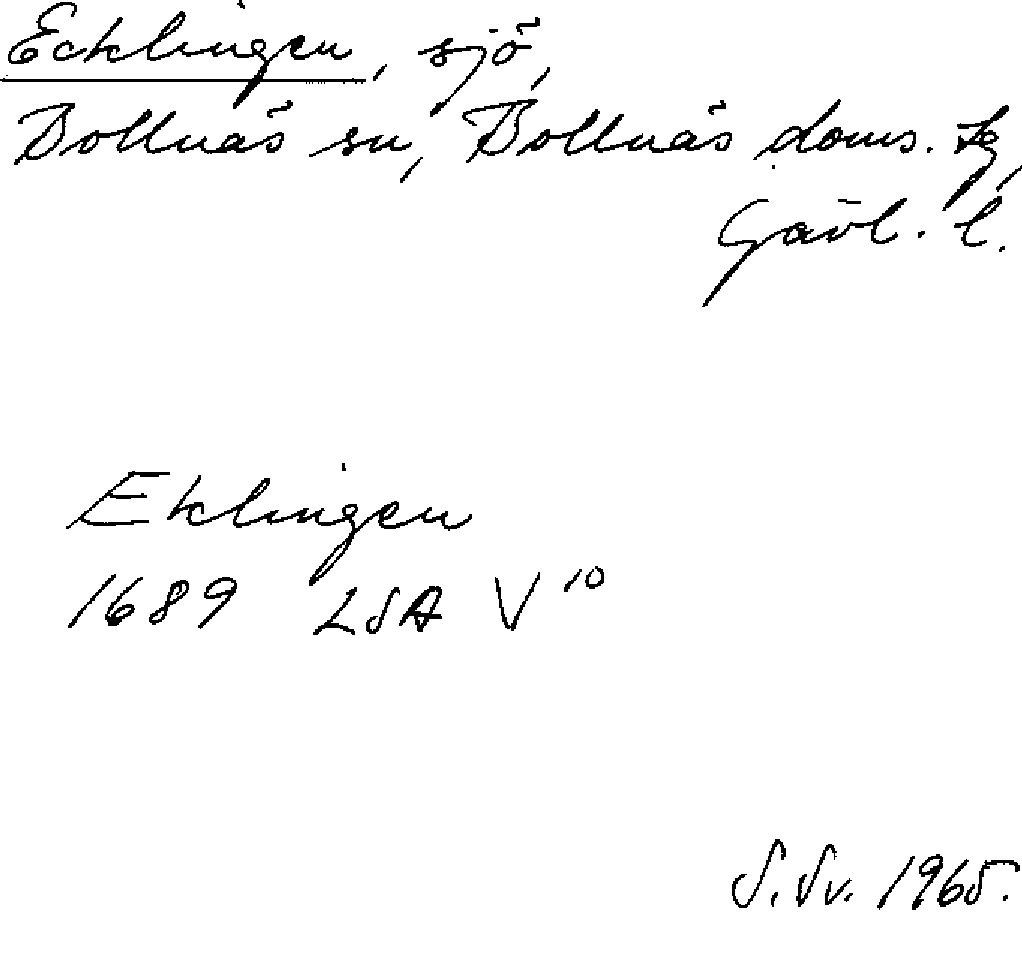 Ecklingen, sjö,
Bollnäs sn, Bollnäs doms. lg,
Gävl. l.
Eklingen
1689 LSA V¹⁰
S. Sv. 1965.